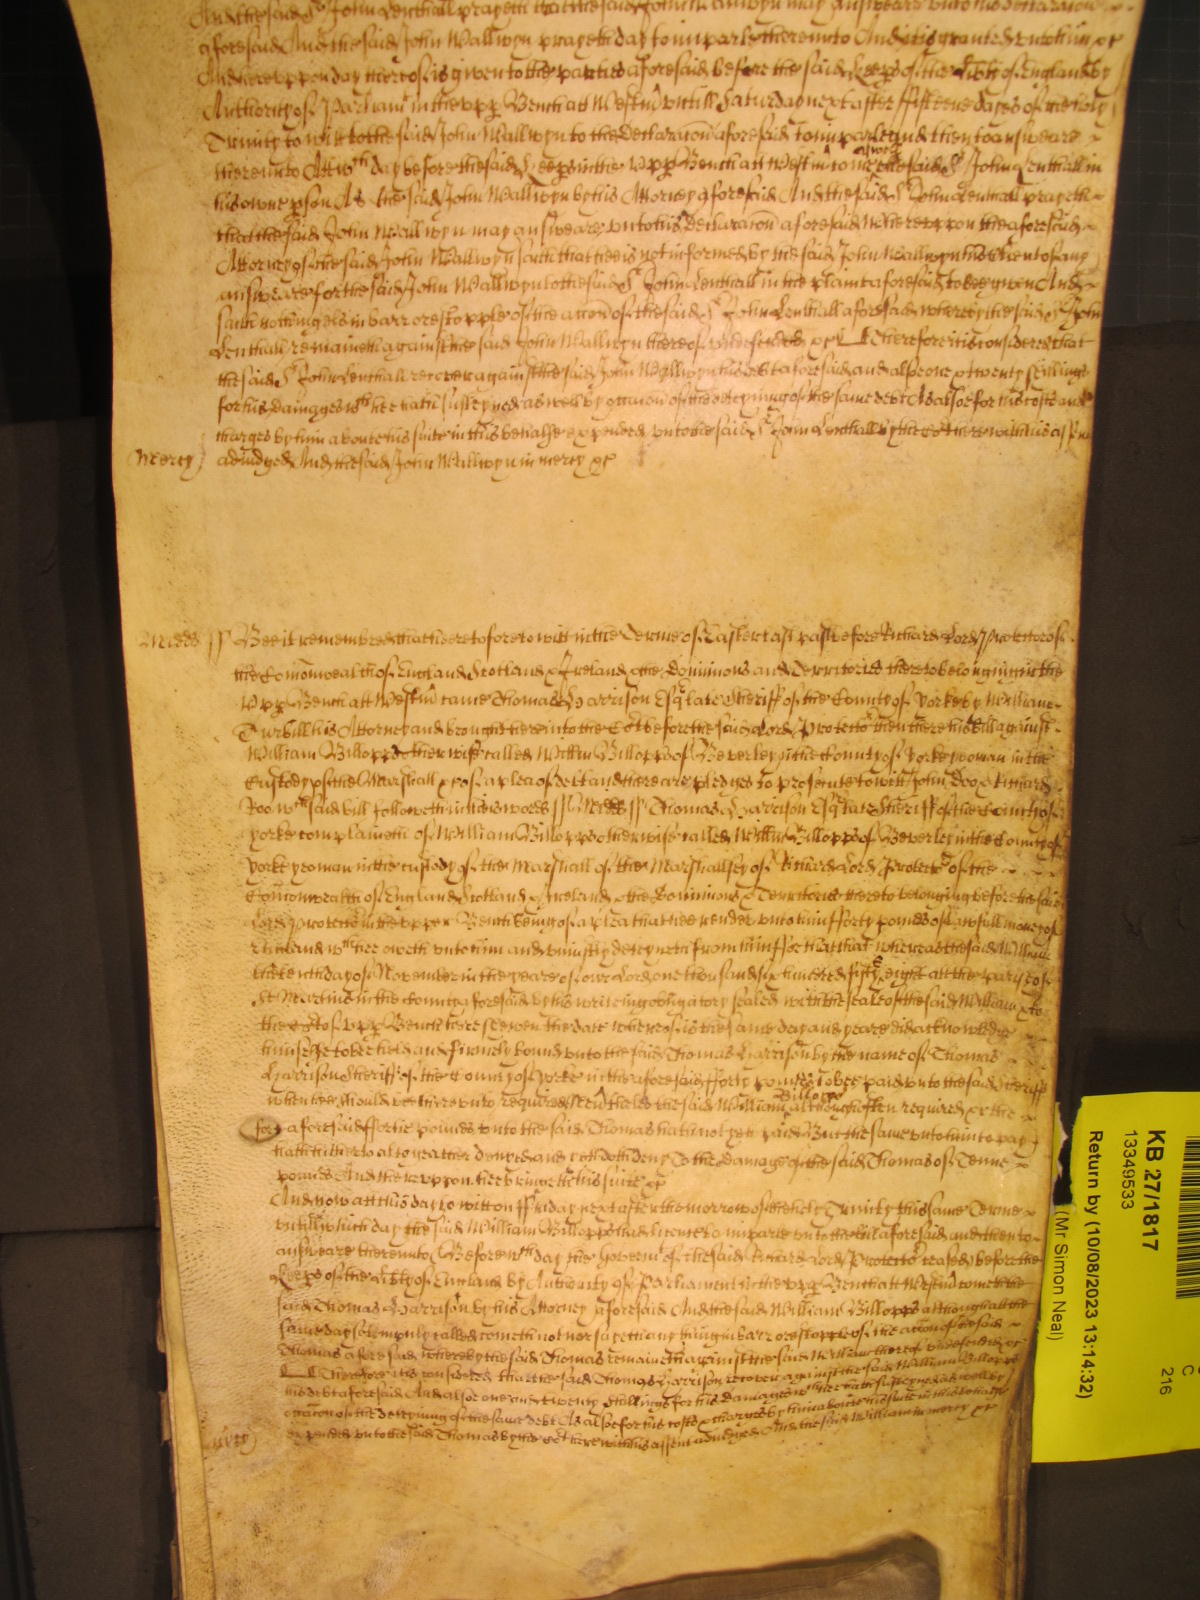 And the said Sr John Lenthall prayeth that the said John Wallwyn may answeare unto his declaracon
aforesaid And the said John Wallwyn prayeth day to imparle thereunto And it is granted unto him &c
And hereuppon day thereof is given to the parties aforesaid before the said Keepers of the Libtie of England by
Authority of Parliamt in the upp Bench att Westmr untill Saturday next after fifteene dayes of the holy
Trinity to witt to the said John Wallwyn to the declaracon aforesaid to imparle and then to answeare
thereunto Att wch day before the said Keepers in the upp Bench att Westmr come aswell the said Sr John Lenthall in
his owne pson As the said John Wallwyn by his Attorney aforesaid And the said Sr John Lenthall prayeth
that the said John Wallwyn may answeare unto his declaracon aforesaid Whereuppon the aforesaid
Attorney of the said John Wallwyn saith that hee is not informed by the said John Wallwyn his Client of any
answeare for the said John Wallwyn to the said Sr John Lenthall in the plaint aforesaid to bee given And
saith nothing els in barr or estopple of the accon of the said Sr John Lenthall aforesaid whereby the said Sr John
Lenthall remaineth against the said John Wallwyn thereof undefended &c Therefore it is considered that
the said Sr John Lenthall recover against the said John Wallwyn his debt aforesaid and alsoe one & twenty shillings
for his damages wch hee hath susteyned as well by occasion of the deteyning of the same debt As alsoe for his costs and
charges by him about his suite in this behalfe expended unto the said Sr John Lenthall by the Cort here with his assent
Mercy adiudged And the said John Wallwyn in mercy &c
Midds // Bee it remembred that heretofore to witt in the Terme of Easter last past before Richard Lord Protector of
the Comonwealth of England Scotland & Ireland & the Dominions and Territories thereto belonging in the
Upp Bench att Westmr came Thomas Harrison Esqr late Sheriff of the County of Yorke by William
Turbill his Attorney and brought here into the Cort before the said Lord Protector then there his Bill against
William Billopps otherwise called Willm Billopps of Beverley in the County of Yorke yeoman in the
Custody of the Marshall &c of a plea of debt and there are pledges to prosecute to witt John Doo & Richard
Roo wch said bill followeth in these words // Midds // Thomas Harrison Esqr late Sheriff of the County of
Yorke complaineth of William Billopps otherwise called Willm Billopps of Beverley in the County of
Yorke yeoman in the custody of the Marshall of the Marshallsey of Richard Lord Protector of the
Comonwealth of England Scotland & Ireland & the Dominions & Territories thereto belonging before the said
Lord Protector in the upper Bench being of a plea that hee render unto him fforty pounds of lawfull mony of
England wch hee oweth unto him and uniustly deteyneth from him ffor that that whereas the said William
the tenth day of November in the yeare of our Lord one thousand six hundred fifty eight att the parish of
St Martins in the County aforesaid by his writeing obligatory sealed with the seale of the said William & to
the Cort of upp Bench here shewen the date whereof is the same day and yeare did acknowledge
himselfe to bee held and firmely bound unto the said Thomas Harrison by the name of Thomas
Harrison Sheriff of the County of Yorke in the aforesaid fforty pounds to bee paid unto the said Sheriff
when hee should bee thereunto required Neverthelesse the said William Billopps although often required &c the
aforesaid ffortie pounds unto the said Thomas hath not yet paid But the same unto him to pay
hath hitherto altogeather denyed and still doth deny To the damage of the said Thomas of Tenne
pounds And thereuppon hee bringeth his suite &c
And now att this day to witt on ffriday next after the morrow of the holy Trinity this same Terme
untill which day the said William Billopps had licence to imparle unto the bill aforesaid and then to
answeare thereunto Before wch day the Governmt of the said Richard Lord Protector ceased before the
Keepers of the Libty of England by Authority of Parliament in the upp Bench att Westmr cometh the
said Thomas Harrison by his Attorney aforesaid And the said William Billopps although att the
same day solempnly called cometh not nor sayeth any thing in barr or estopple of the accon of the said
Thomas aforesaid whereby the said Thomas remaineth against the said William thereof undefended &c
Therefore it is considered that the said Thomas Harrison recover against the said William Billopps
his debt aforesaid And alsoe one and twenty shillings for his damages wch hee hath susteyned as well by
occasion of the deteyning of the same debt As alsoe for his costs & charges by him about his suite in this behalfe
Mercy expended unto the said Thomas by the Cort here with his assent adiudged And the said William in mercy &c
KB 27/1817
13349533
Return by (10/08/2023 13:14:32)
(Mr Simon Neal)
C
216